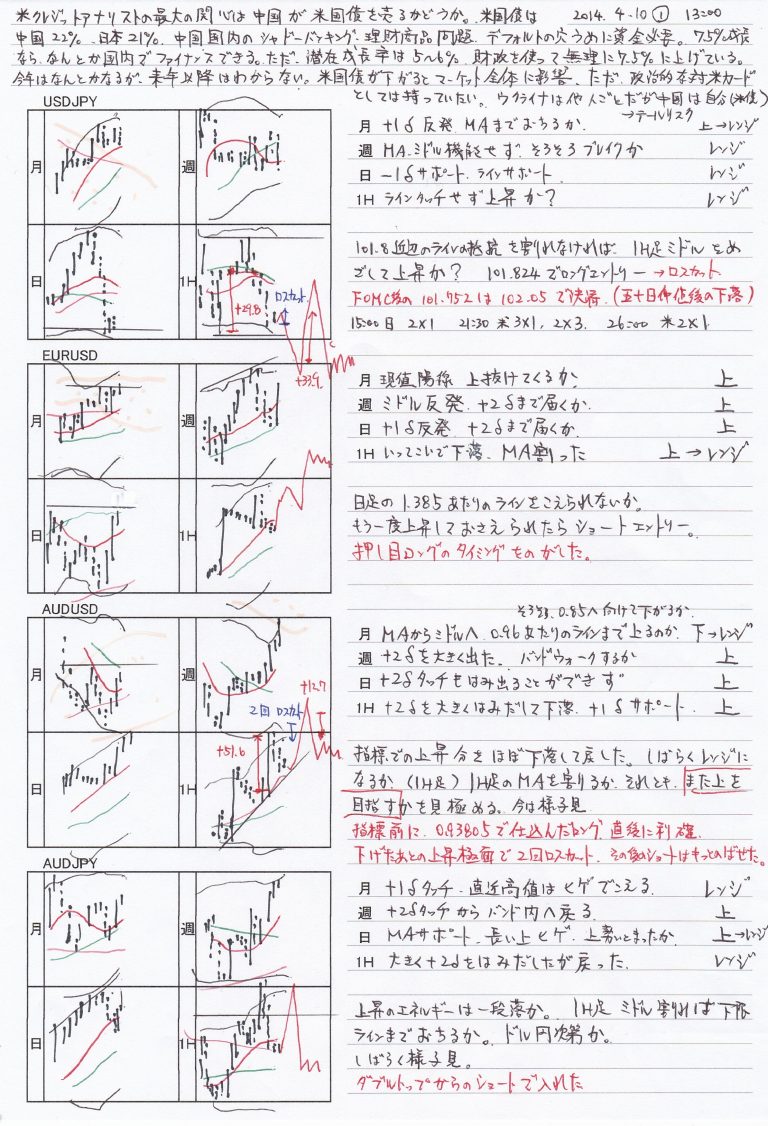 米クレジットアナリストの最大の関心は中国が米国債を売るかどうか。米国債は 2014. 4. 10 ① 13:00
中国22%、日本21%、中国国内のシャドーバンキング、理財商品問題、デフォルトの穴うめに資金必要。7.5%成長
なら、なんとか国内でファイナンスできる。ただ、潜在成長率は5~6%、財政を使って無理に7.5%に上げている。
今年はなんとかなるが、来年以降はわからない。米国債が下がるとマーケット全体に影響、ただ、政治的な対米カード
としては持っていたい。ウクライナは他人ごとだが中国は自分(米債)
→テールリスク
USDJPY
月 +1δ反発 MAまでおちるか。 上→レンジ
週 MA、ミドル機能せず、そろそろブレイクか レンジ
日 -1δサポート、ラインサポート、 レンジ
1H ラインタッチせず上昇か? レンジ
月
週
日
1H
+29.8
ロスカット
+33.9
101.8近辺のラインの抵抗を割れなければ 1H足ミドルをめ
ざして上昇か? 101.824でロングエントリー→ロスカット
FOMC後の101.752は102.05で決済、(五十日仲値後の下落)
15:00 日 2×1 21:30 米 3×1, 2×3. 26:00 米 2×1
EURUSD
月 現値陽線 上抜けてくるか、 上
週 ミドル反発、+2δまで届くか、 上
日 +1δ反発 +2δまで届くか、 上
1H いってこいで下落、MA割った 上→レンジ
月
週
日
1H
日足の1.385あたりのラインをこえられないか。
もう一度上昇しておさえられたらショートエントリー。
押し目ロングのタイミングをのがした。
AUDUSD
そろそろ、0.85へ向けて下がるか、
月 MAからミドルへ、0.96あたりのラインまで上るのか、下→レンジ
週 +2δを大きく出た、バンドウォークするか 上
日 +2δタッチもはみ出ることができず 上
1H +2δを大きくはみだして下落、+1δサポート、 上
月
週
日
1H
+12.7
2回ロスカット
+51.6
指標での上昇分をほぼ下落して戻した。しばらくレンジに
なるか(1H足) 1H足のMAを割るか、それとも、また上を
目指すかを見極める。今は様子見
指標前に、0.93805で仕込んだロング、直後に利確、
下げたあとの上昇極面で2回ロスカット、その後のショートはもっとのばせた。
AUDJPY
月 +1δタッチ、直近高値はヒゲでこえる、 レンジ
週 +2δタッチからバンド内へ戻る、 上
日 MAサポート、長い上ヒゲ、上勢いとまったか、 上→レンジ
1H 大きく+2δをはみだしたが戻った、 レンジ
月
週
日
1H
上昇のエネルギーは一段落か。1H足ミドル割れば下限
ラインまでおちるか。ドル円次第か。
しばらく様子見。
ダブルトップからのショートで入れた